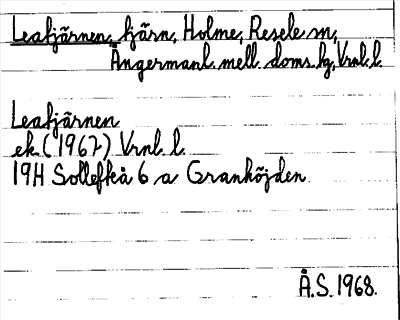 Leatjärnen, tjärn, Holme, Resele sn,
Ångermanl. mell. doms. lg, Vrnl. l.
Leatjärnen
ek. (1967) Vrnl. l.
19H Sollefteå 6 a Granhöjden
Å.S. 1968.